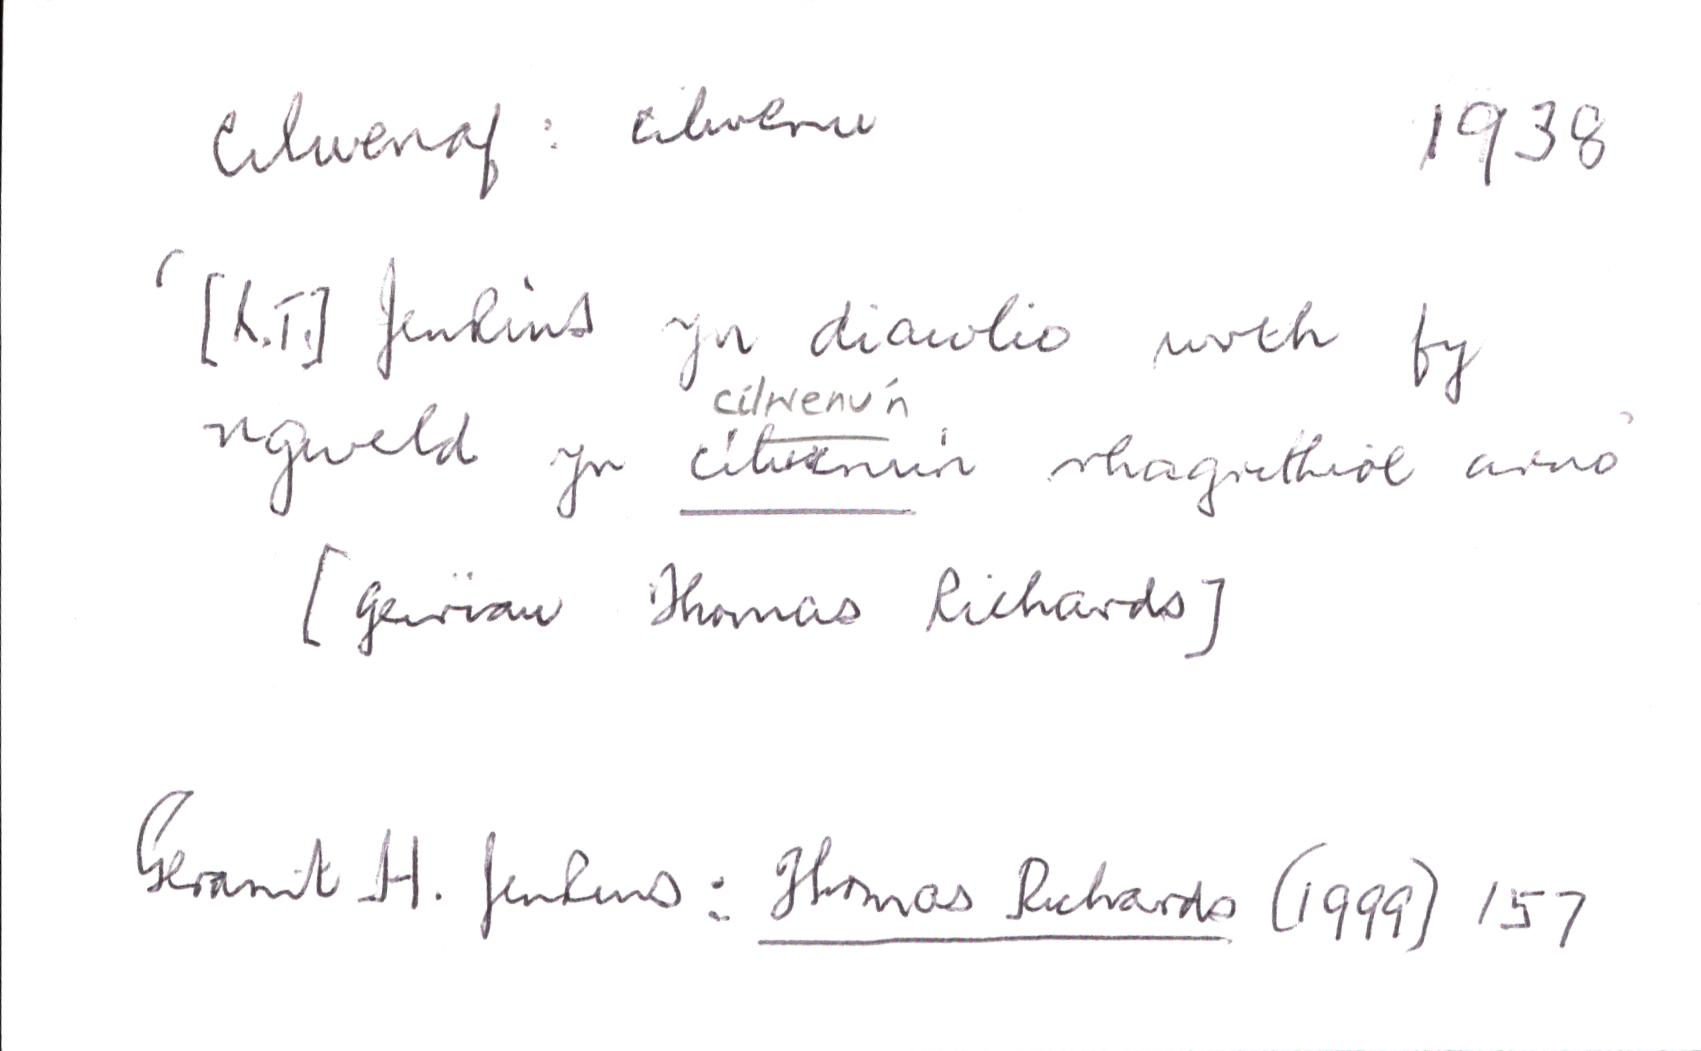 cilwenaf : cilwenu 1938
‘[R.T.] Jenkins yn diawlio wrth fy
cilwenu'n
ngweld yn cilwenu'n rhagrithiol arno’
[geiriau Thomas Richards]
Geraint H. Jenkins : Thomas Richards (1999) 157